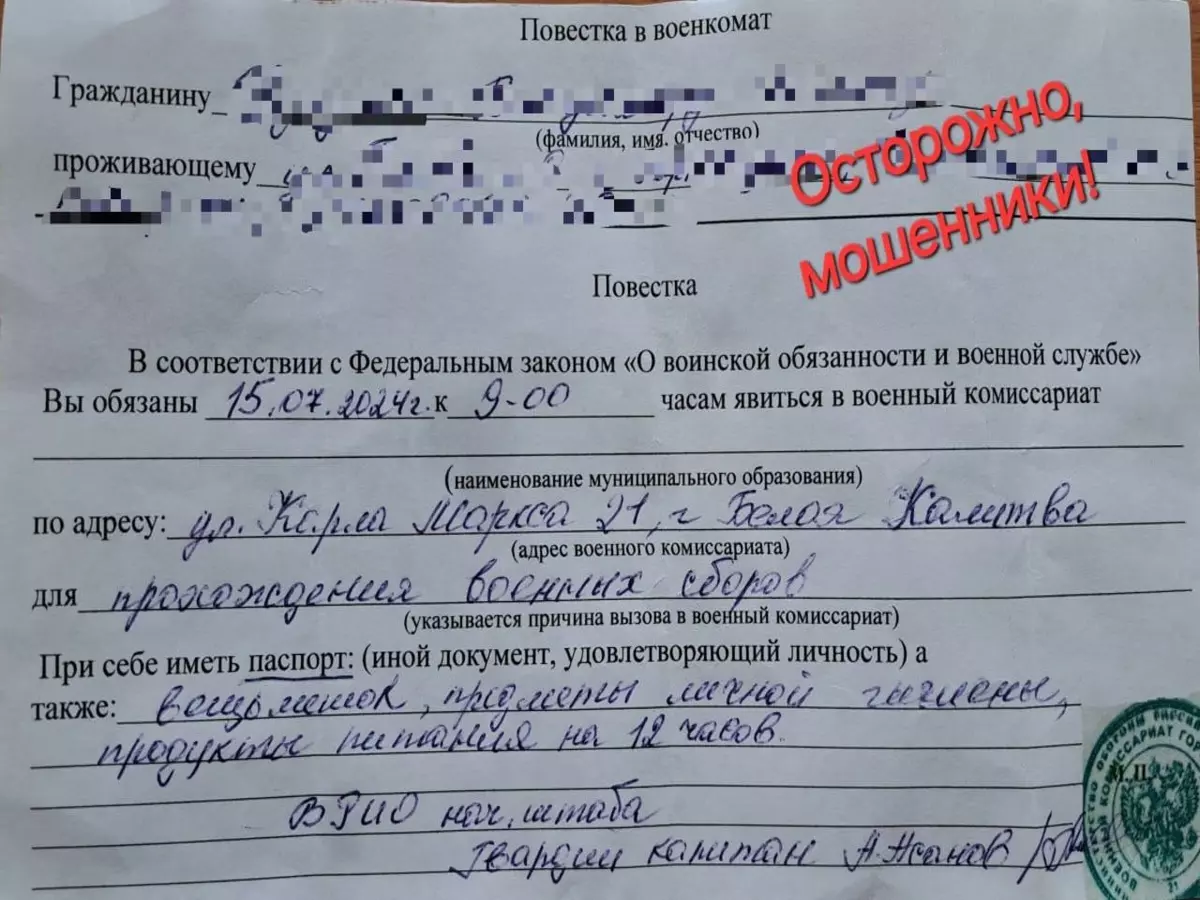 Повестка в военкомат
Гражданину
(фамилия, имя. отчество)
проживающему
Осторожно,
мошенники!
Повестка
В соответствии с Федеральным законом «О воинской обязанности и военной службе»
Вы обязаны 15.07.2024г. к 9-00 часам явиться в военный комиссариат
(наименование муниципального образования)
по адресу: ул. Карла Маркса 21, г Белая Калитва
(адрес военного комиссариата)
для прохождения военных сборов
(указывается причина вызова в военный комиссариат)
При себе иметь паспорт: (иной документ, удовлетворяющий личность) а
также: вещьмешок, предметы личной гигиены,
продукты питания на 12 часов.
М.П.
ВРИО нач. штаба
Гвардии капитан А.Жанов